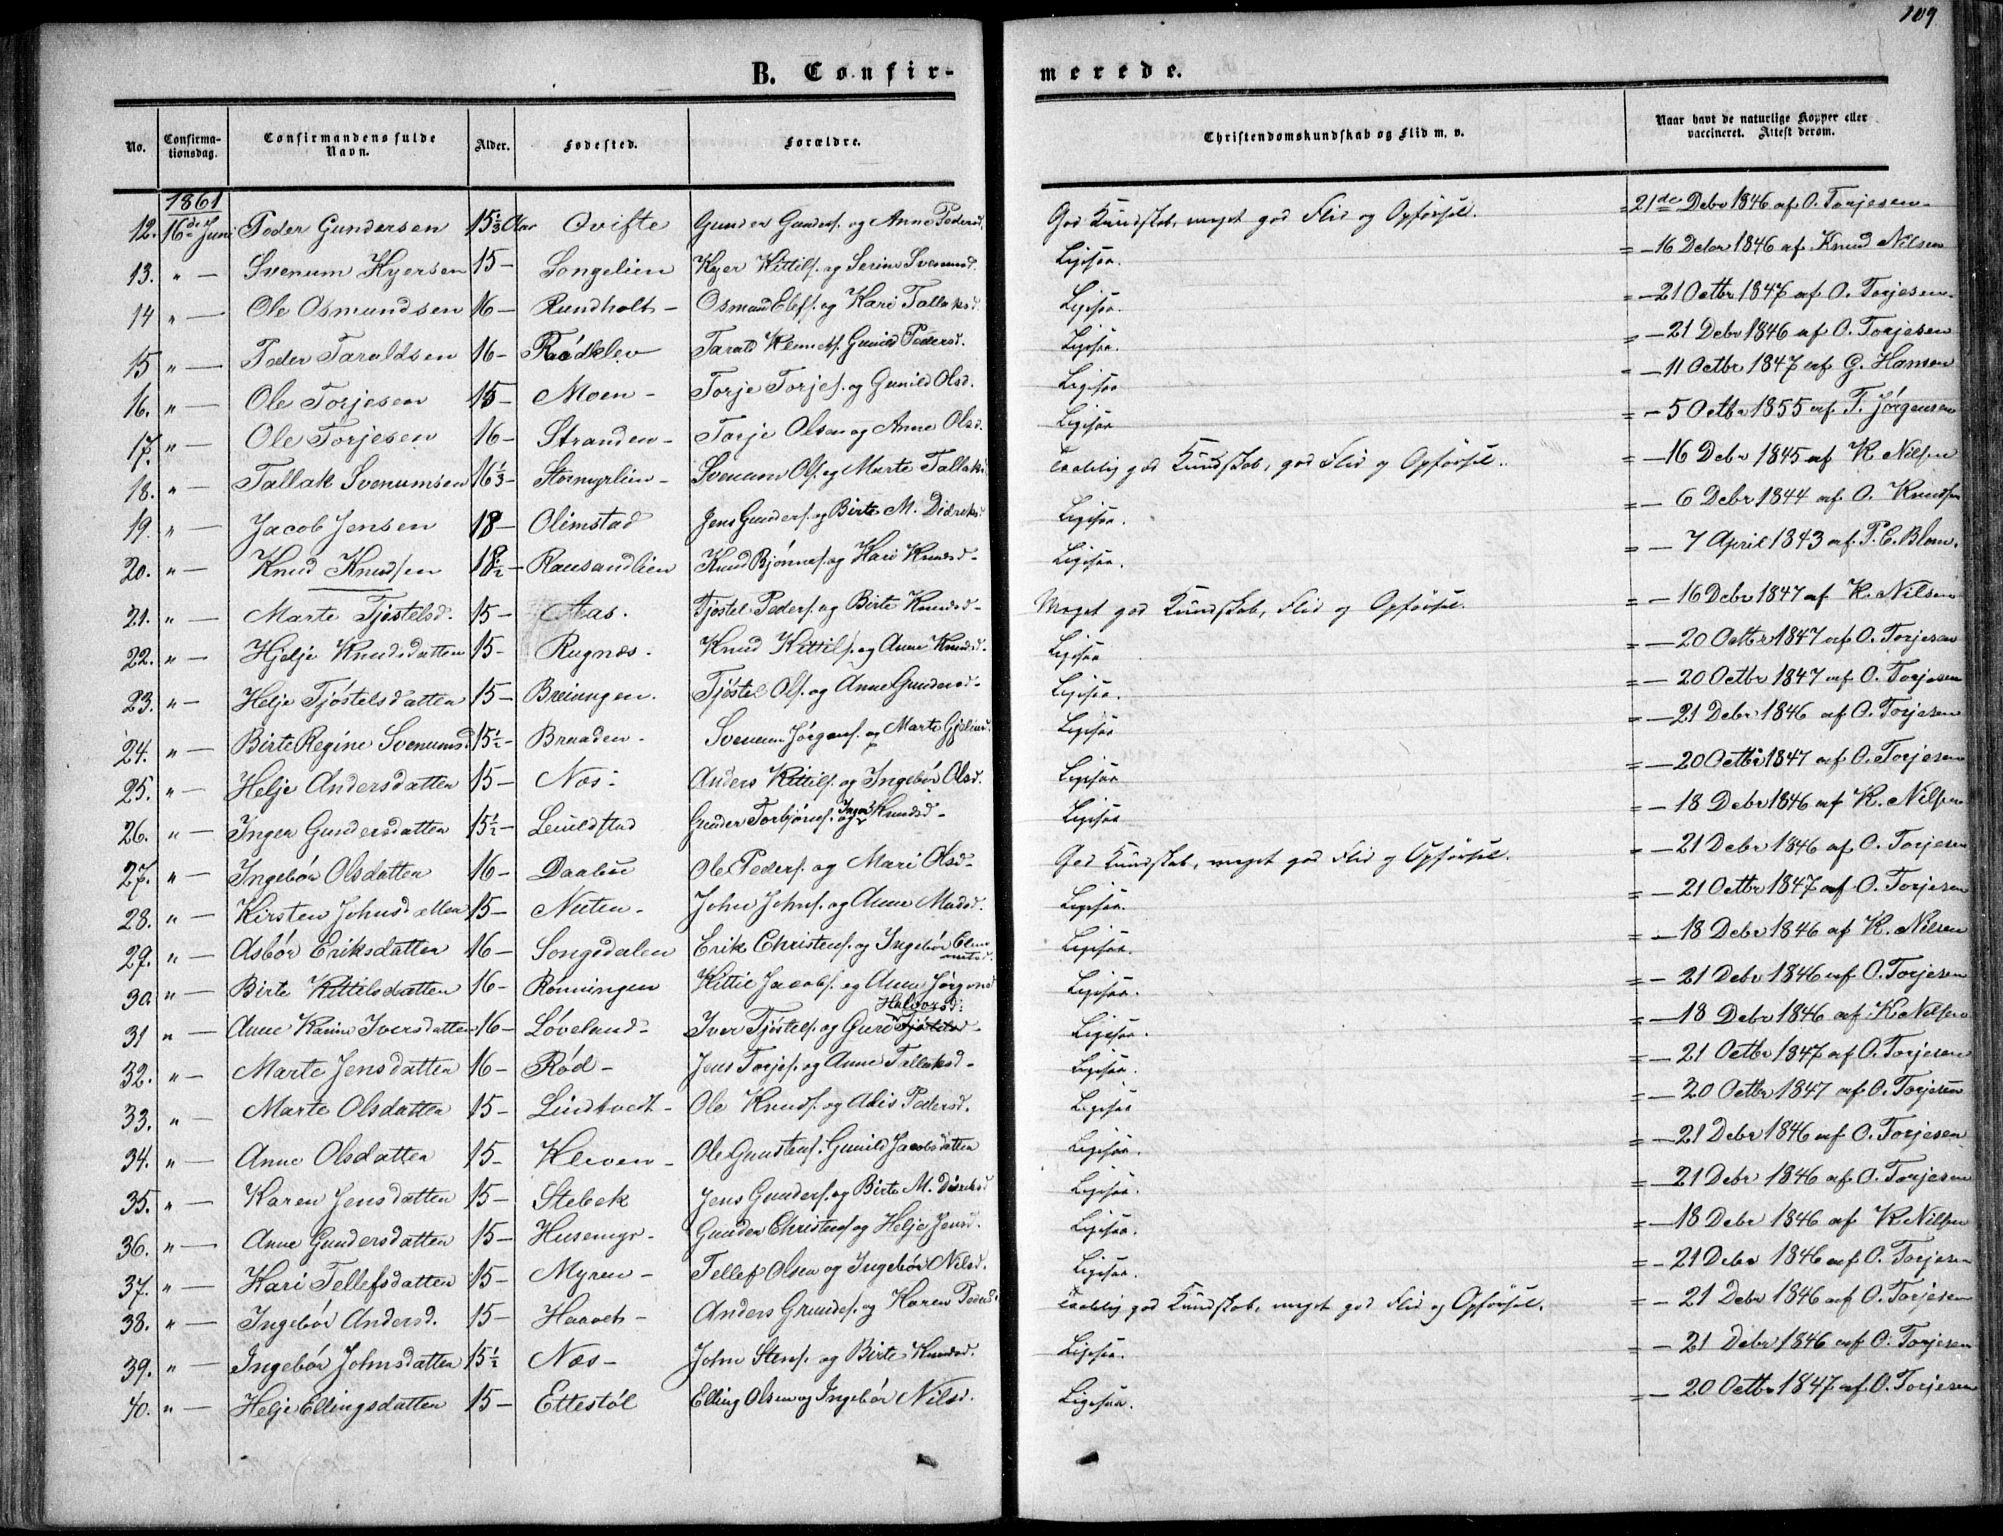 109
B. Confirmerede.
No. Confirmationsdag. Confirmandens fulde Navn. Alder. Fødested. Forældre. Christendomskundskab og Flid m. v. Naar havt de naturlige Kopper eller vaccineret. Attest derom.
1861
12. 16de Juni Peder Gundersen 15 1/3 Aar Qvifte Gunder Gunders. og Anne Pedersd. God Kundskab, meget god Flid og Opførsel. 21de Debr 1846 af O. Torjesen
13. " — Svenum Kyersen 15 — Songelien Kyer Kittils. og Serine Svenumsd. Ligesaa. — 16 Debr 1846 af Knud Nilsen
14 " — Ole Osmundsen 16 — Rundholt — Osmund Olefs. og Kari Tallaksd. Ligesaa. — 21 Octbr 1847 af O. Torjesen
15 " — Peder Taraldsen 16 — Rødklev Tarald Kennets. Gunild Pedersd. Ligesaa. — 21 Debr 1846 af O. Torjesen
16. " — Ole Torjesen 15 — Moen — Torje Torjes. og Gunild Olsd. Ligesaa — 11 Octbr 1847 af G. Hansen
17. " — Ole Torjesen 16 — Stranden — Torje Olsen og Anne Olsd. Ligesaa — 5 Octbr 1855 af T. Jørgensen
18. " — Tallak Svenumsen 16 1/3 — Stormyrlien — Svenum Ols. og Marte Tallaks. Taalelig god Kundskab, god Flid og Opførsel. — 16 Debr 1845 af K. Nilsen
19. " — Jacob Jensen 18 — Olimstad Jens Gunders. og Birte M. Didreksd. Ligesaa. — 6 Debr 1844 af O. Knudsen
20. " — Knud Knudsen 18 1/2 — Rausandlien Knud Bjønnes. og Kari Knudsd. — Ligesaa. — 7 April 1843 af P. C. Blom.
21. " — Marte Tjøstelsd. 15 — Aas. Tjøstel Peders. og Birte Knudsd. — Meget god Kundskab, Flid og Opførsel. — 16 Debr 1847 af K. Nilsen
22. " — Hjelje Knudsdatter 15 — Rugnæs. Knud Kittils. og Anne Knudsd. Ligesaa — 20 Octbr 1847 af O. Torjesen
23. " — Helje Tjøstelsdatter 15 — Breiungen. Tjøstel Ols. og Anne Gundersd. — Ligesaa. — 20 Octbr 1847 af O. Torjesen
24. " — Birte Regine Svenumsd. 15 1/2 — Braaden — Svenum Jørgens. og Marte Ligesaa — 21 Debr 1846 af O. Torjesen
25. " — Helje Andersdatter 15 — Næs — Anders Kittils. og Ingebør Olsd. Ligesaa — 20 Octbr 1847 af O. Torjesen
26. " — Inger Gundersdatter 15 1/2 — Leuildstad Gunder Torbjørns. og Inger Knudsd. — Ligesaa — 18 Debr 1846 af K. Nilsen
27. " — Ingebør Olsdatter 16 — Daalen Ole Peders. og Mari Olsd. — God Kundskab, meget god Flid og Opførsel. — 21 Debr 1846 af O. Torjesen
28. " — Kirsten Johnsdatter 15 — Nuten — John Johns. og Anne Madsd. Ligesaa. — 21 Octbr 1847 af O. Torjesen
29. " — Asbør Eriksdatter 16 — Songedalen Erik Christens. og Ingebør Ligesaa — 18 Debr 1846 af K. Nilsen
30. " — Birte Kittilsdatter 16 — Rønningen Kittil Jacobs. og Anne Jørgensd. Ligesaa. — 21 Debr 1846 af O. Torjesen
31 " — Anne Karine Iversdatter 16 — Løveland — Iver Tjøstels. og Guro Halvorsd. Ligesaa. — 18 Debr 1846 af K. Nilsen
32. " — Marte Jensdatter 16 — Rød — Jens Torjes. og Anne Tallaksd. — Ligesaa. — 21 Octbr 1847 af O. Torjesen
33. " — Marte Olsdatter 15 — Lindtvedt — Ole Knuds. og Adis Pedersd. Ligesaa — 20 Octbr 1847 af O. Torjesen
34. " — Anne Olsdatter 15 — Kleven — Ole Gunstens. Gunild Jacobsdatter Ligesaa. — 21 Debr 1846 af O. Torjesen
35. " — Karen Jensdatter 15 — Stebek Jens Gunders. og Birte M. Didriksd Ligesaa. — 21 Debr 1846 af O. Torjesen
36. " — Anne Gundersdatter 15 — Husemyr — Gunder Christens. og Helje Jensd. Ligesaa. — 18 Debr 1846 af K. Nilsen
37. " — Kari Tellefsdatter 15 — Myren — Tellef Olsen og Ingebør Nilsd. Ligesaa. — 21 Debr 1846 af O. Torjesen
38. " — Ingebør Andersd. 15 — Haavet — Anders Grundes. og Karen Pedersd. Taalelig god Kundskab, meget god Flid og Opførsel. — 21 Debr 1846 af O. Torjesen
39. " — Ingebør Johnsdatter 15 1/2 Næs — John Stens. og Birte Knudsd. Ligesaa. — 21 Debr 1846 af O. Torjesen
40. " — Helje Ellingsdatter 15 — Ettestøl Elling Olsen og Ingebør Nilsd. Ligesaa. — 20 Octbr 1847 af O. Torjesen